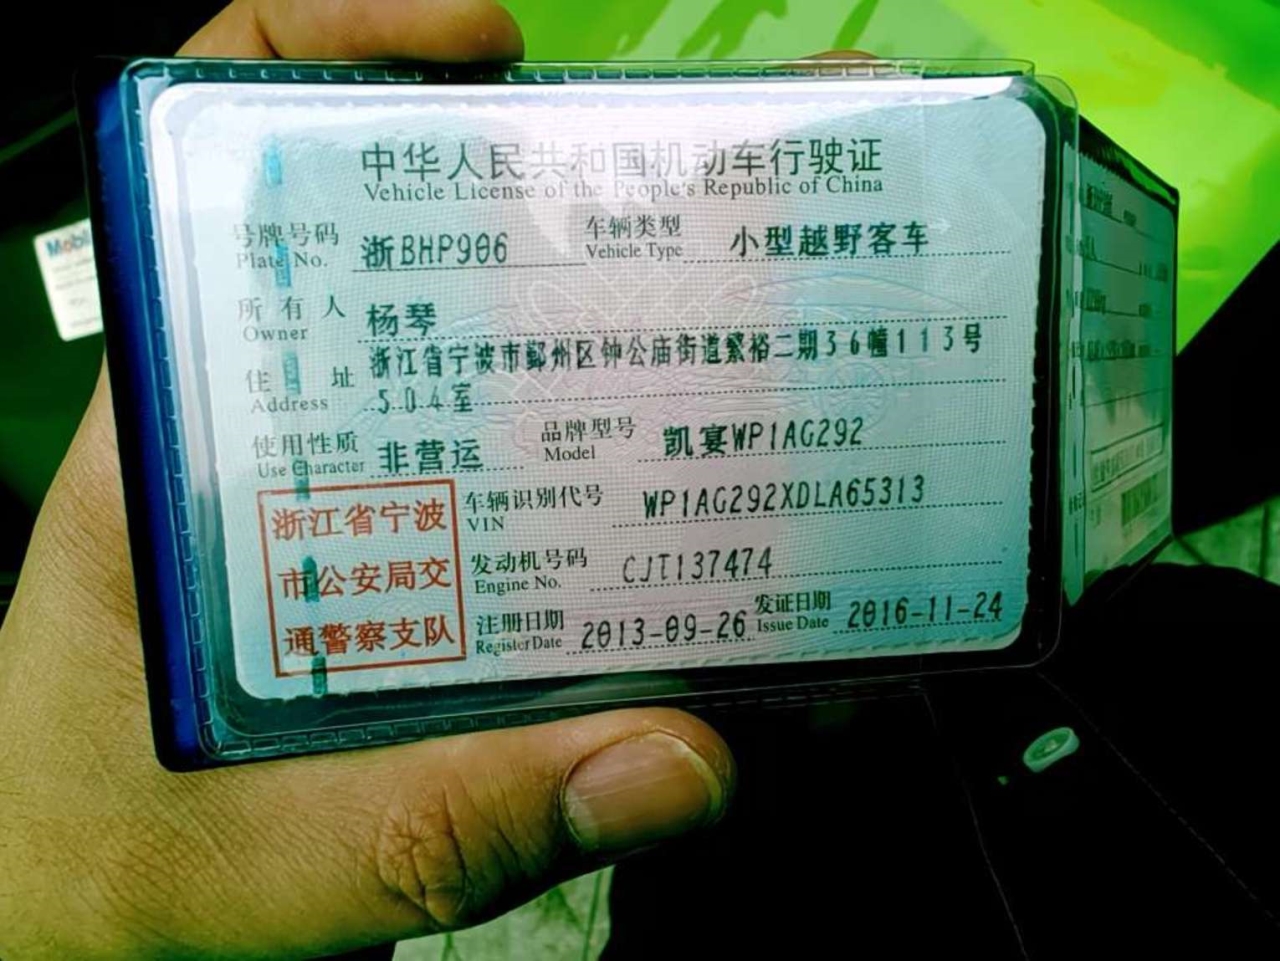 中华人民共和国机动车行驶证
Vehicle License of the People's Republic of China
号牌号码 浙BHP906 车辆类型 小型越野客车
Plate No. Vehicle Type
所有人 杨琴
Owner
住址 浙江省宁波市鄞州区钟公庙街道繁裕二期36幢113号
Address 504室
使用性质 非营运 品牌型号 凯宴WP1AG292
Use Character Model
浙江省宁波
市公安局交
通警察支队
车辆识别代号 WP1AG292XDLA65313
VIN
发动机号码 CJT137474
Engine No.
注册日期 2013-09-26 发证日期 2016-11-24
Register Date Issue Date
Mobil